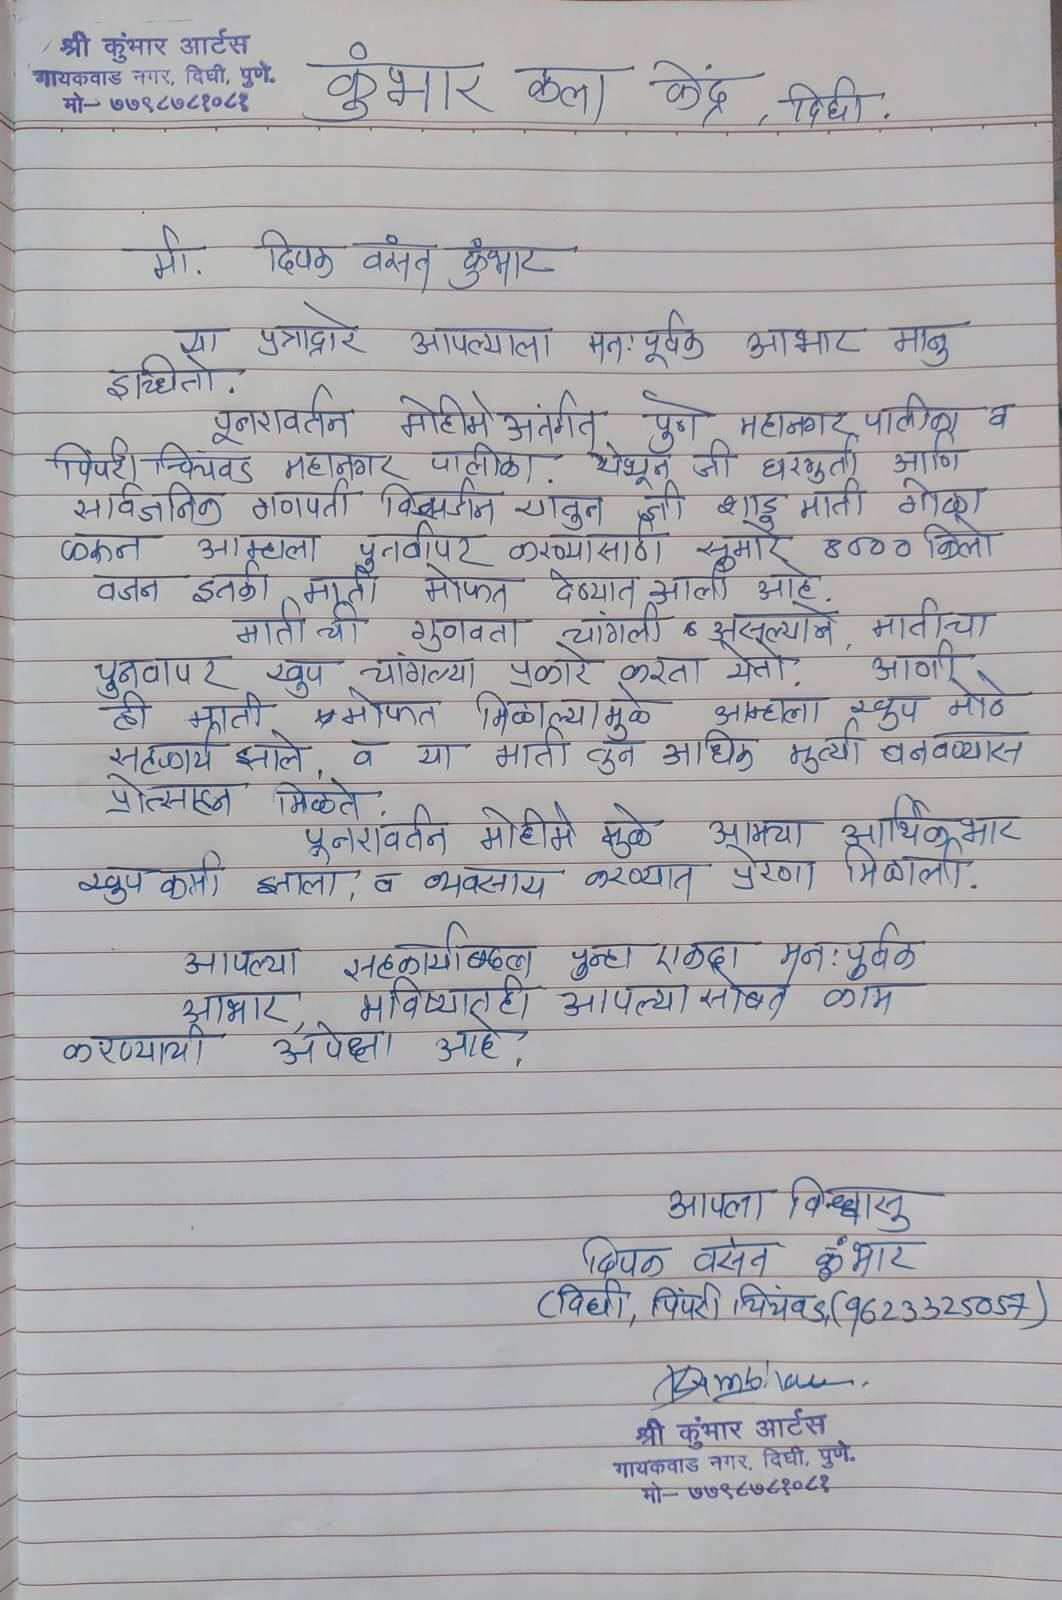 श्री कुंभार आर्टस
गायकवाड नगर, दिघी, पुणे.
मो- ७७९८७८१०८१
कुंभार कला केंद्र, दिघी.
मी. दिपक वसंत कुंभार
या पत्राद्वारे आपल्याला मनःपूर्वक आभार मानु
इच्छितो.
पूनरावर्तन मोहीमे अंतर्गत पुणे महानगर पालीका व
पिंपरी चिंचवड महानगर पालीका. येथून जी घरगुती आणि
सार्वजनिक गणपती विसर्जन यातुन जी शाडू माती गोळा
करून आम्हाला पुनर्वापर करण्यासाठी सुमारे ४००० किलो
वजन इतकी माती मोफत देण्यात आली आहे.
माती ची गुणवता चांगली असल्याने, मातीचा
पुनवापर खुप चांगल्या प्रकारे करता येतो. आणी
ही माती मोफत मिळाल्यामुळे आम्हाला खुप मोठे
सहकार्य झाले, व या माती तुन अधिक मुर्त्या बनवण्यास
प्रोत्साहन मिळते.
पूनरावर्तन मोहीमे मुळे आमचा आर्थिक भार
खुप कमी झाला, व व्यवसाय करण्यात प्रेरणा मिळाली.
आपल्या सहकार्याबद्दल पुन्हा एकदा मनःपुर्वक
आभार, भविष्यातही आपल्या सोबत काम
करण्याची अपेक्षा आहे.
आपला विश्वासु
दिपक वसंत कुंभार
(दिघी, पिंपरी चिंचवड,(9623325057)
श्री कुंभार आर्टस
गायकवाड नगर, दिघी, पुणे.
मो- ७७९८७८१०८१